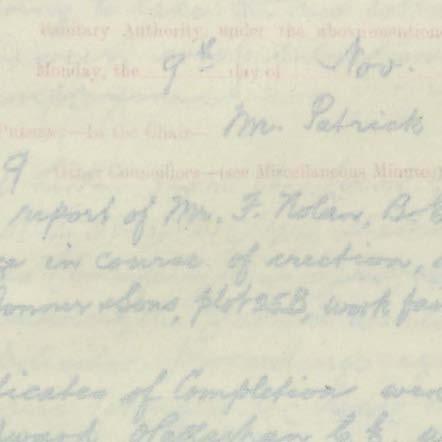 Sanitary Authority, under the abovementione
Monday, the 9th day of Nov.
Present:—In the Chair— Mr. Patrick
9 Other Councillors—(see Miscellaneous Minute
report of Mr. F. Nolan, B.E
in course of erection,
Connor & Sons, plot 25B, work
ticates of Completion were